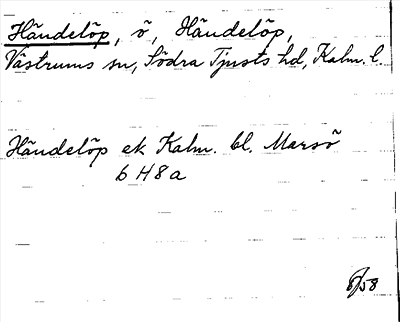 Händelöp, ö, Händelöp,
Västrums sn, Södra Tjusts hd, Kalm. l.
Händelöp ek Kalm. bl. Marsö
6 H 8 a
8/58